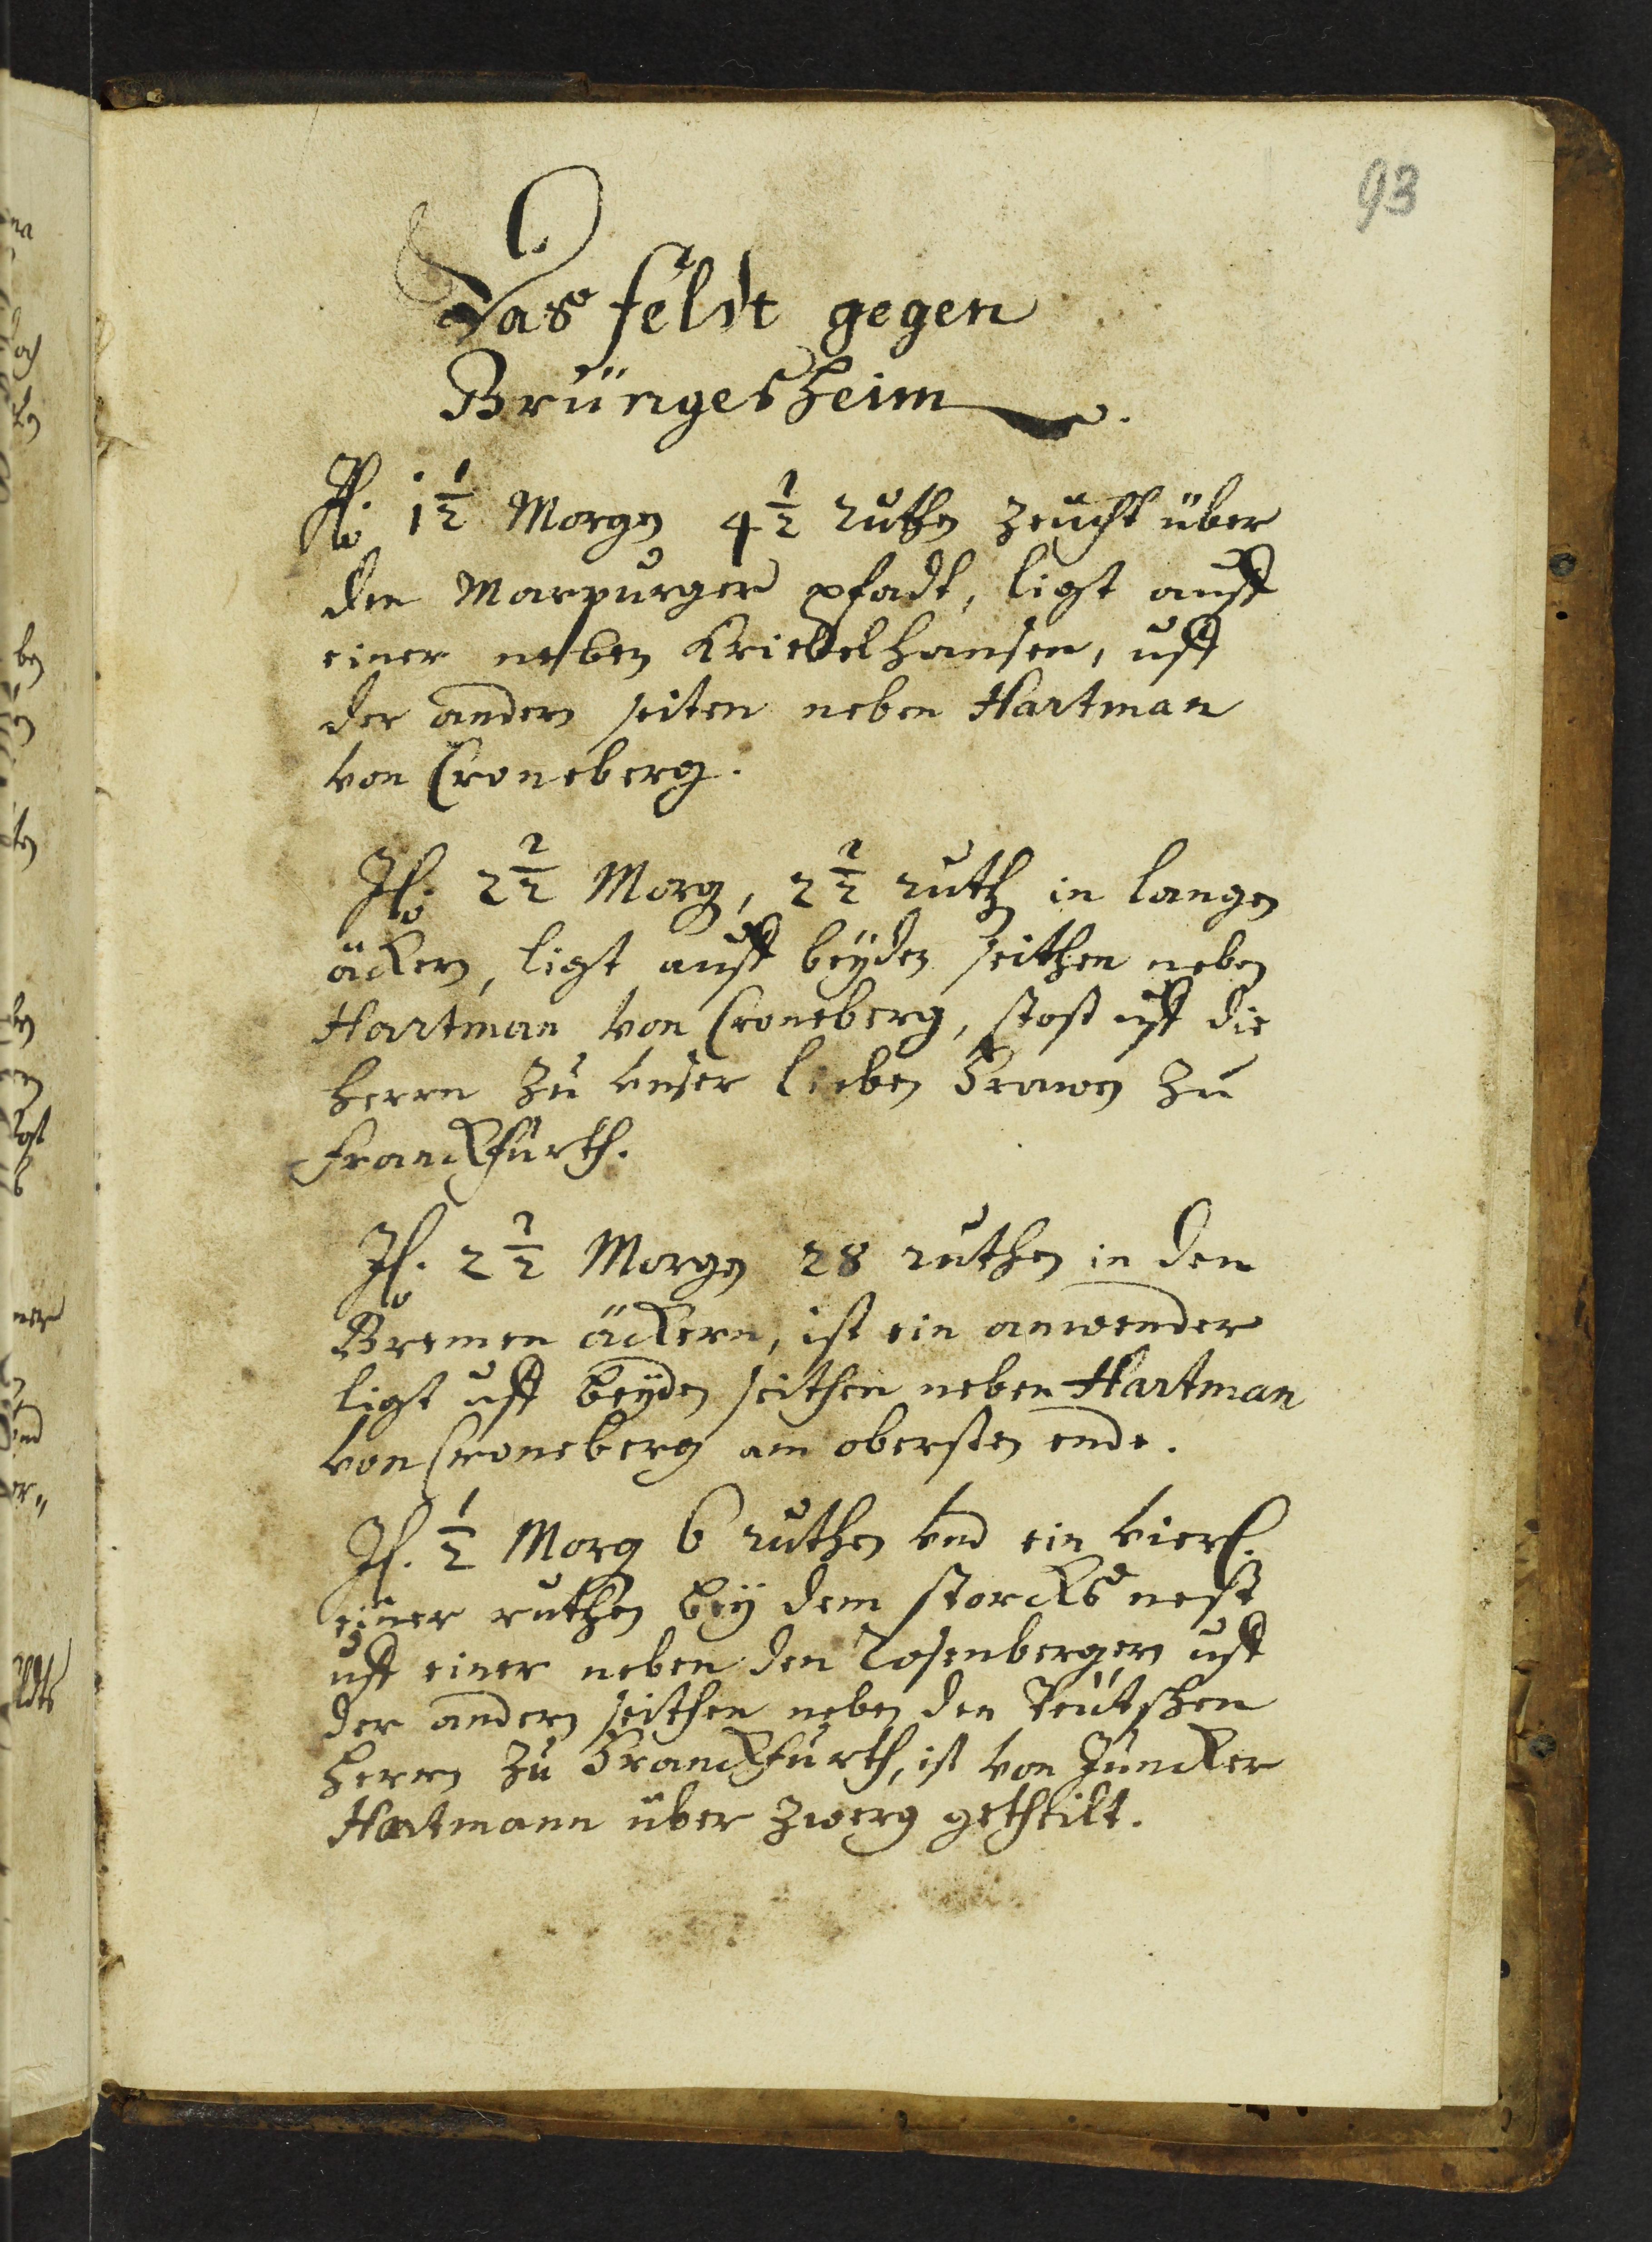 93
Das feldt gegen
Brüngesheim
It. 1½ Morgen 4½ ruthen zeucht über
den Marpurger pfadt, ligt auff
einer neben Kriebelhausen, uff
der andern seiten neben Hartman
von Croneberg.
It. 2½ Morg, 2½ ruth in langen
äckern, ligt auff beyden seithen neben
Hartman von Croneberg, stost uff die
herrn zu unser lieben Frawen zu
Franckfurth.
It. 2½ Morgen 28 ruthen in den
Bremen äckern, ist ein anwender
ligt uff beyden seithen neben Hartman
von Croneberg am obersten ende.
It. ½ Morg 6 ruthen vnd ein viert.
einer ruthen bey dem storcks nest
uff einer neben den Rosenbergern uff
der andern seithen neben den Teutschen
herrn zu Franckfurth, ist von Juncker
Hartmann über zwerg getheilt.